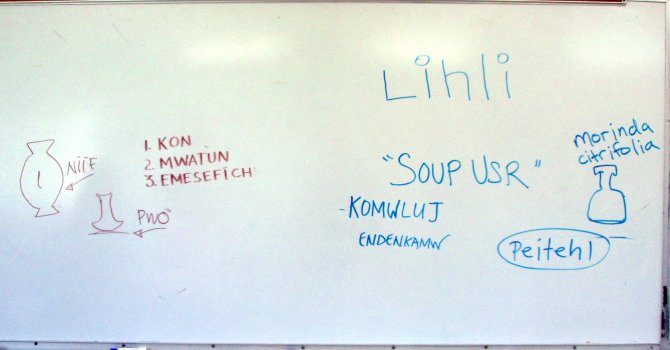 Lihli
NIIF
1. KON
2. MWATUN
3. EMESEFICH
PWO
"SOUP USR"
-KOMWLUJ
ENDENKAMW
morinda
citrifolia
Peitehl